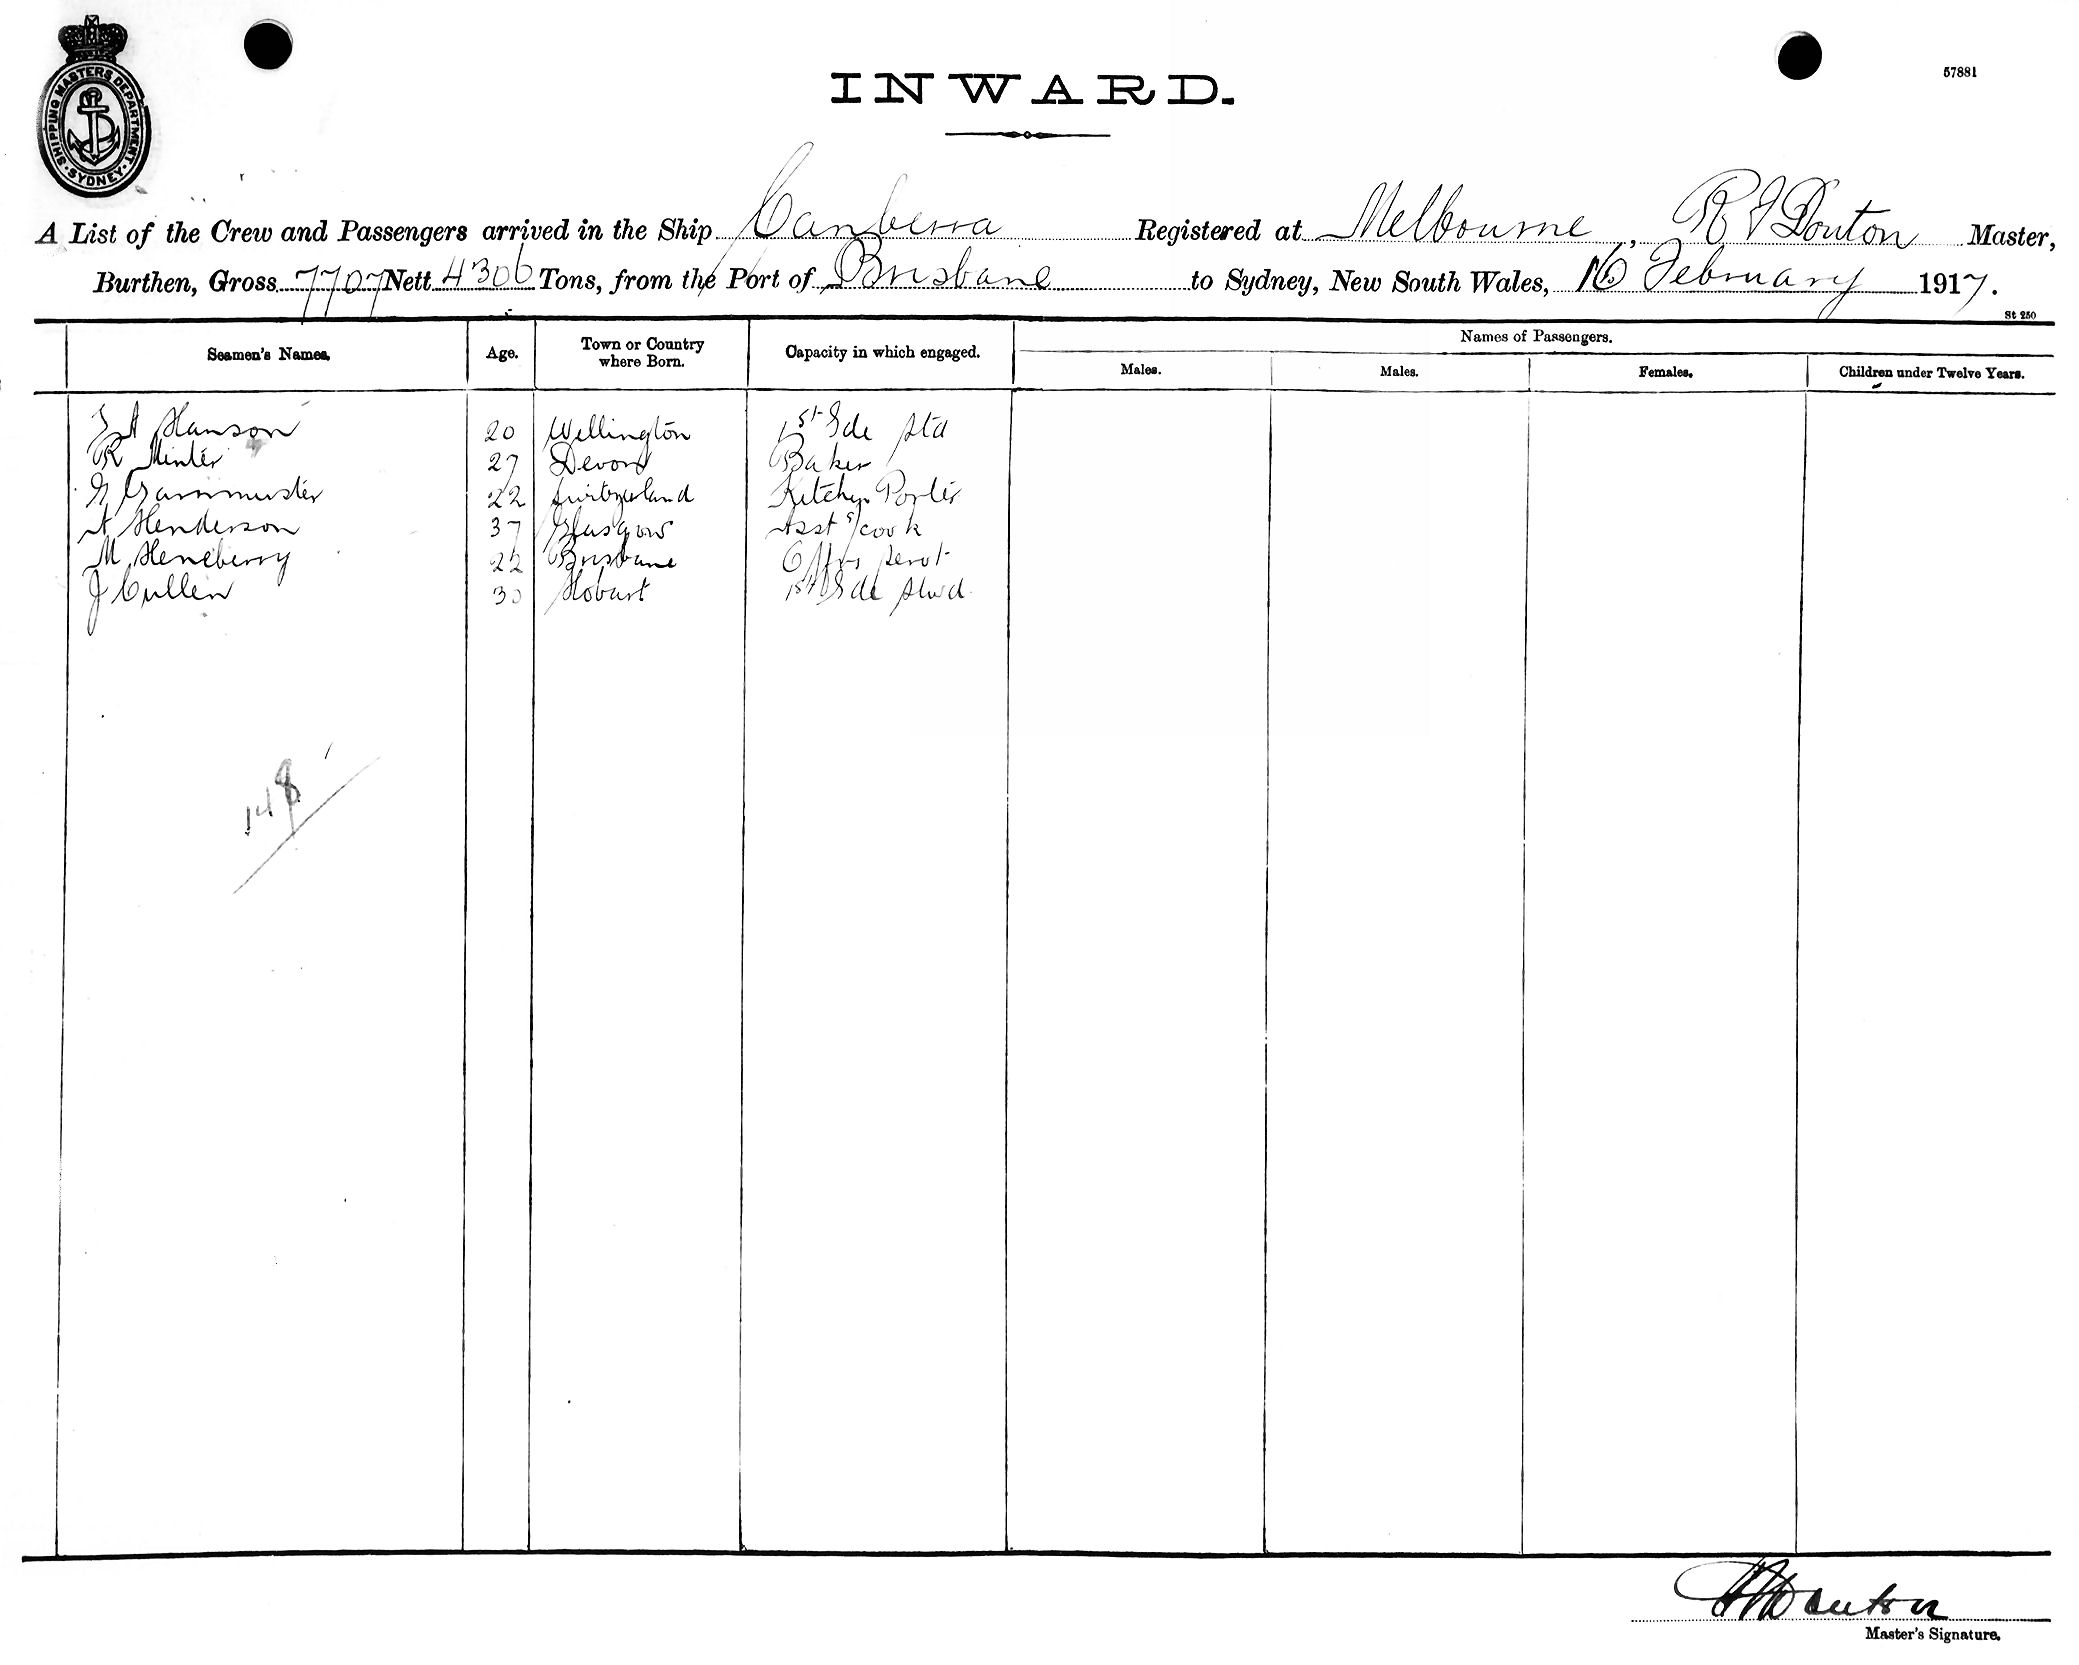 SHIPPING MASTERS DEPARTMENT
SYDNEY
57881
INWARD.
A List of the Crew and Passengers arrived in the Ship Canberra Registered at Melbourne, R Douton Master,
Burthen, Gross 7707 Nett 4306 Tons, from the Port of Brisbane to Sydney, New South Wales, 16 February 1917.
St 250
Seamen's Names. Age. Town or Country where Born. Capacity in which engaged. Names of Passengers.
Males. Males. Females. Children under Twelve Years.
A Hanson 20 Wellington 1st Sde Std
R Minter 27 Devon Baker
22 Switzerland Kitchn Porter
A Henderson 37 Glasgow Asst s/cook
M Heneberry 22 Brisbane Offrs servt
J Cullen 30 Hobart 1st Sde stwd
148
Master's Signature.